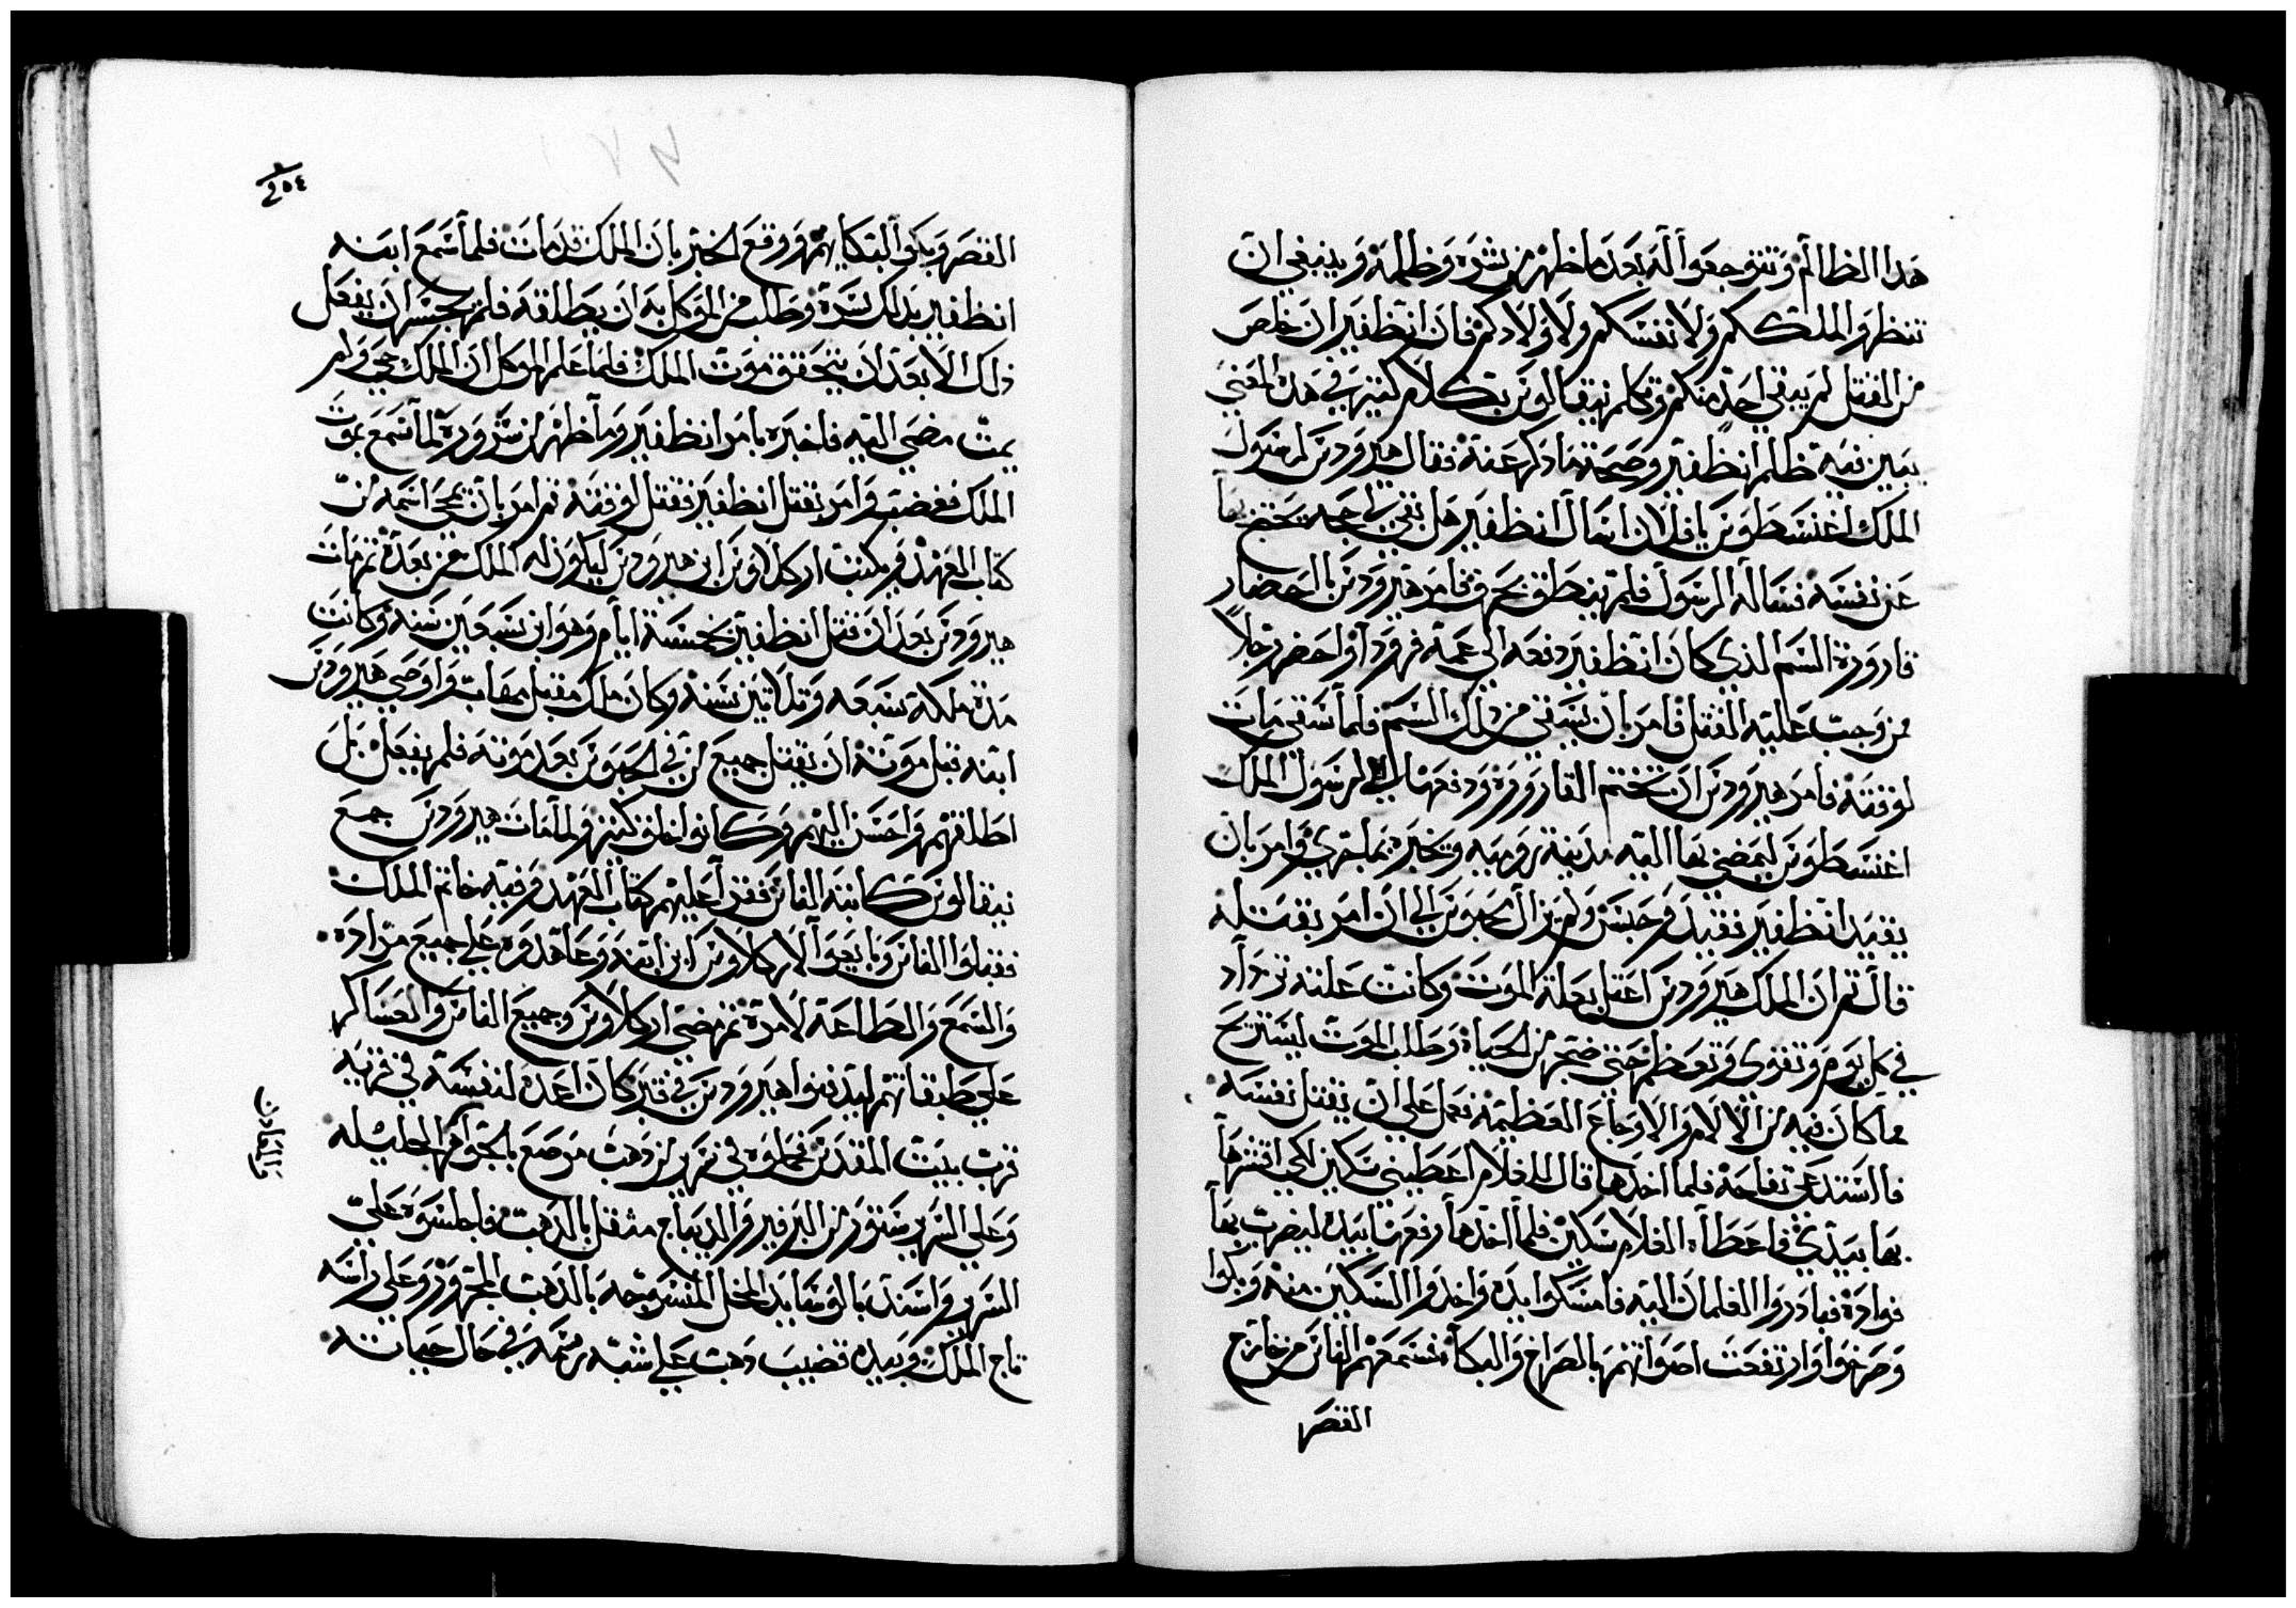 هذا الظالم وتتوجعوا له بعد ما ظهر من شره وظلمه وينبغي ان
تنظروا لملككم ولانفسكم ولاولادكم فان انظفير ان خلص
من القتل لم يبقي احد منكم وتكلم نيقالوس بكلام كثير في هذه المعني
يبين فيه ظلم انظفير وصحة ما ذكر عنه فقال هيرودس لرسول
الملك اغسطوس يا فلان اسال انظفير هل بقي له حجه يحتج بها
عن نفسه فساله الرسول فلم ينطق بحرف فامر هيرودس باحضار
قارورة السم الذي كان انظفير دفعه الي عمه فرودا واحضر رجلاً
من وجب عليه القتل فامر بان يسقي من ذلك السم فلما سقي مات
لوقته فامر هيرودس ان تختم القارورة ودفعها الي رسول الملك
اغسطوس ليمضي بها اليه مدينة روميه ويخبره بما جري وامر بان
يقيد انظفير فقيد وحبس ولم يزال محبوس الي ان امر بقتله
قال ثم ان الملك هيرودس اعتل بعلة الموت وكانت علته تزداد
في كل يوم وتقوي وتعظم حتي ضجر من الحياة وطلب الموت ليستريح
مما كان فيه من الالام والاوجاع العظيمة فعمل علي ان يقتل نفسه
فاستدعي تفاحة فلما اخذها قال للغلام اعطيني سكين لكي اقشرها
بها بيدي فاعطاه الغلام سكين فلما اخذها رفعها بيده ليضرب بها
فواده فبادروا الغلمان اليه فامسكوا يده واخذوا السكين منه وبكوا
وصرخوا وارتفعت اصواتهم بالصراخ والبكاء فسمعهم الناس من خارج
القصر
٤٥٤
القصر وبكوا لبكايهم ووقع الخبر بان الملك قد مات فلما سمع ابنه
انظفير بذلك سره وطلب من الموكل به ان يطلقه فلم يجسر ان يفعل
ذلك الا بعد ان يتحقق موت الملك فلما علم الموكل ان الملك حي ولم
يمت مضي اليه فاخبره بامر انظفير وما ظهر من سروره لما سمع بموت
الملك فغضب وامر بقتل انظفير فقتل لوقته ثم امر بان يمحي اسمه من
كتاب العهد ويكتب اركلاوس ابن هيرودس ليكون له الملك من بعده ثم مات
هيرودس بعد ان قتل انظفير بخمسة ايام وهو ابن سبعين سنه وكانت
مدة ملكه سبعه وثلاثين سنه وكان ملك مقبل مهاب واوصي هيرودس
ابنه قبل موته ان يقتل جميع من في الحبوس بعد موته فلم يفعل بل
اطلقهم واحسن اليهم وكانوا خلق كثير ولما مات هيرودس جمع
نيقالوس كافة الناس فقرا عليهم كتاب العهد وفيه خاتم الملك
فقبلوا الناس وبايعوا لاركلاوس ابن ابنه وعاهدوه علي جميع مراده
والسمع والطاعة لامره ثم مضي اركلاوس وجميع الناس والعساكر
علي طبقاتهم ليدفنوا هيرودس في قبر كان اعده لنفسه في قريه
قرب بيت المقدس فحملوه في سرير من ذهب مرصع بالجواهر الجليله
وعلي السرير ستور من البرفير والديباج مثقل بالذهب فاجلسوه علي
السرير واسند بالوسايد المخمل المنسوجه بالذهب المجرور وعلي راسه
تاج الملك وبيده قضيب ذهب علي شبه رسمه في حال حياته